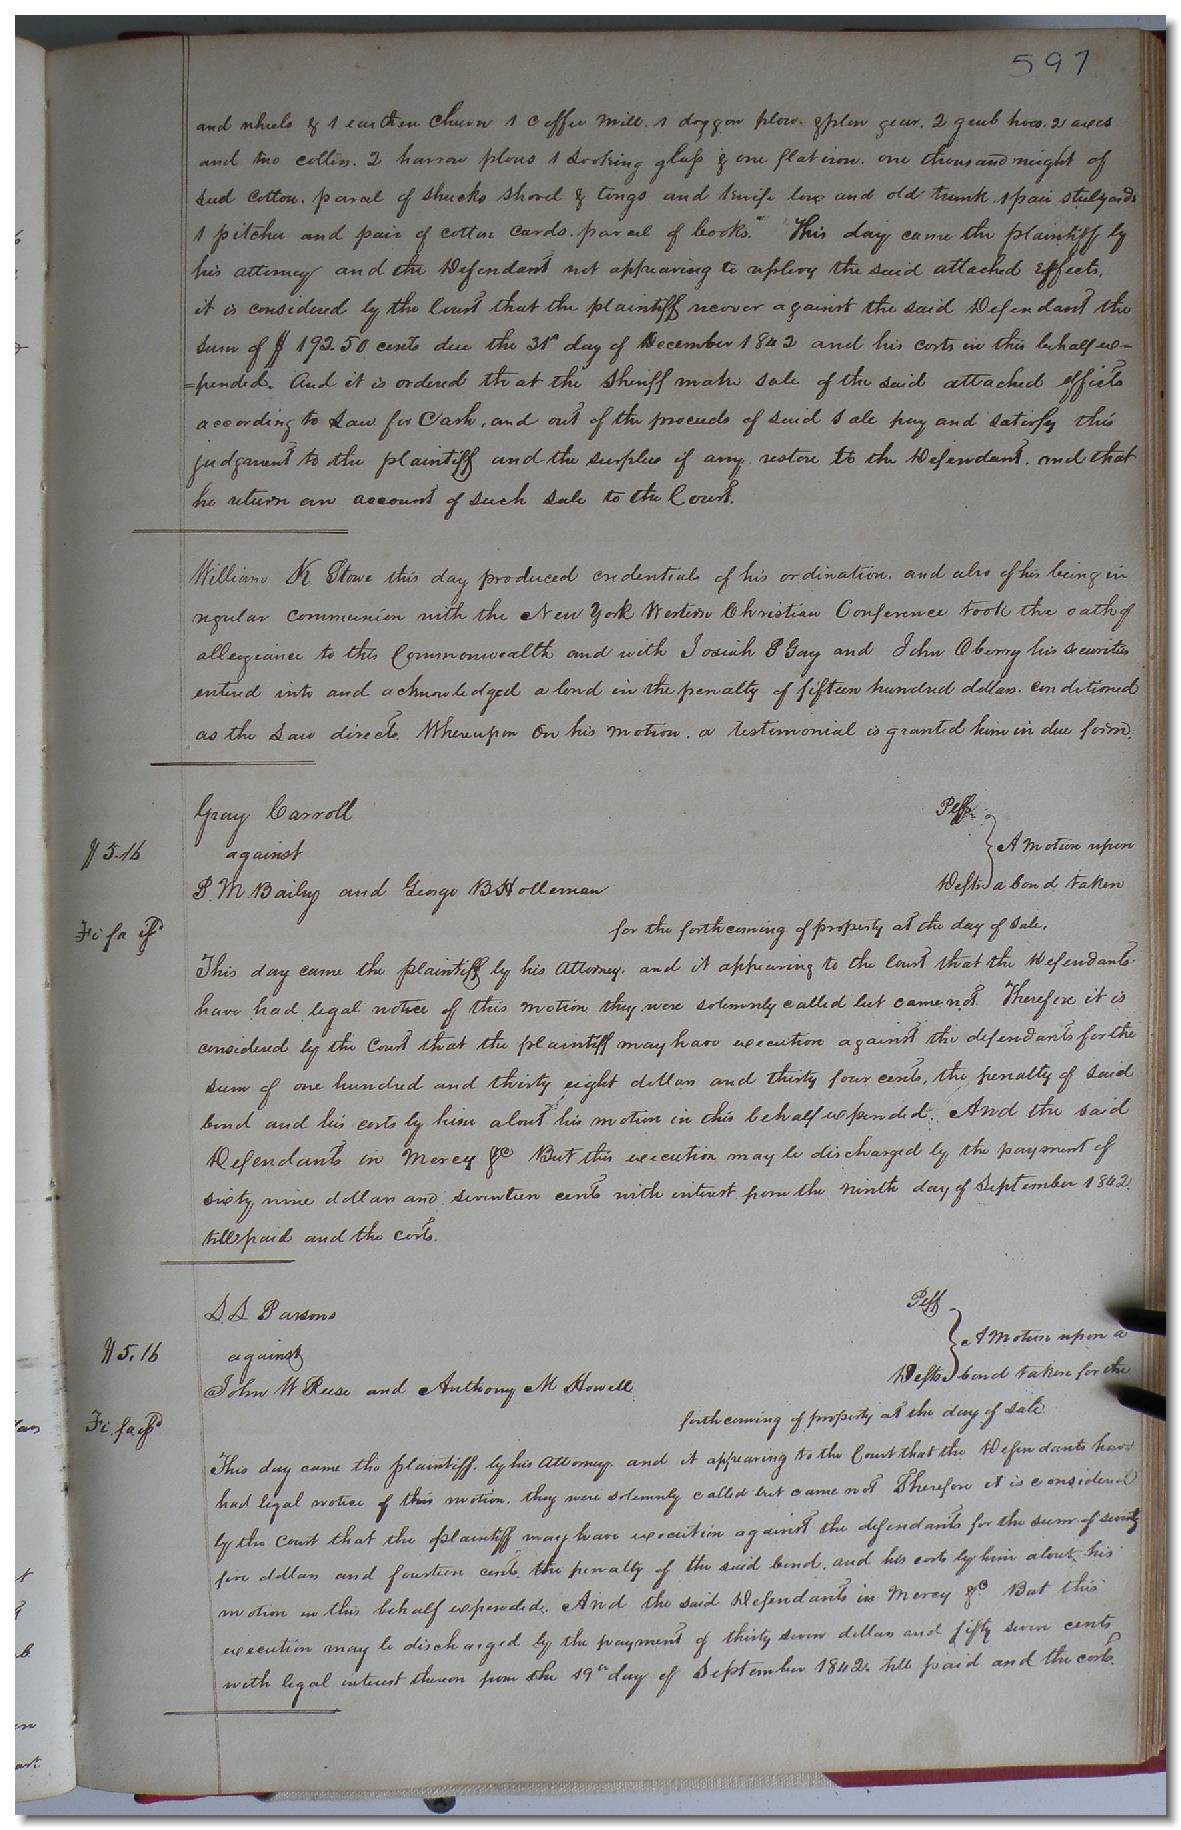 597
and wheels & 1 earthen Churn 1 Coffee Mill. 1 daggon plow. & plow gear. 2 grub hoes. 2 axes
and two collers. 2 harrow plows 1 Looking glass & one flat iron. one thousand weight of
seed Cotton. parcel of shucks shovel & tongs and knife box and old trunk. 1 pair stelyards
1 pitcher and pair of cotton cards. parcel of books." This day came the plaintiff by
his attorney and the Defendant not appearing to replevy the said attached Effects,
it is considered by the Court that the plaintiff recover against the said Defendant the
sum of $192.50 cents due the 31st day of December 1842 and his costs in this behalf ex=
=pended. And it is ordered that the Sheriff make sale of the said attached effects
according to Law for Cash, and out of the proceeds of said sale pay and satisfy this
judgment to the plaintiff and the surplus if any restore to the Defendant. and that
he return an account of such sale to the Court.
William K Stowe this day produced credentials of his ordination, and also of his being in
regular communion with the New York Western Christian Conference took the oath of
allegiance to this Commonwealth and with Josiah P Gay and John Oberry his securities
entered into and acknowledged a bond in the penalty of fifteen hundred dollars. conditioned
as the Law directs. Whereupon On his motion. a testimonial is granted him in due form.
Gray Carroll Plff.
$5.16 against A Motion upon
P. M Baily and George B Holleman Defts a bond taken
Fi fa isd for the forthcoming of property at the day of sale.
This day came the plaintiff by his Attorney. and it appearing to the Court that the Defendants
have had legal notice of this motion they were solemnly called but came not. Therefore it is
considered by the Court that the plaintiff may have execution against the defendants for the
sum of one hundred and thirty eight dollars and thirty four cents, the penalty of said
bond and his costs by him about his motion in this behalf expended. And the said
Defendants in Mercy &c But this execution may be discharged by the payment of
sixty nine dollars and seventeen cents with interest from the ninth day of September 1842.
till paid and the costs.
S. S. Parsons Plff
$5.16 against A Motion upon a
John W Reese and Anthony M Howell Defts bond taken for the
Fi fa isd forthcoming of property at the day of sale
This day came the plaintiff. by his Attorney. and it appearing to the Court that the Defendants have
had legal notice of this motion. they were solemnly called but came not Therefore it is considered
by the Court that the plaintiff may have execution against the defendants for the sum of seventy
five dollars and fourteen cents. the penalty of the said bond. and his costs by him about his
motion in this behalf expended. And the said Defendants in Mercy &c But this
execution may be discharged by the payment of thirty seven dollars and fifty seven cents
with legal interest thereon from the 19th day of September 1842 till paid and the costs.